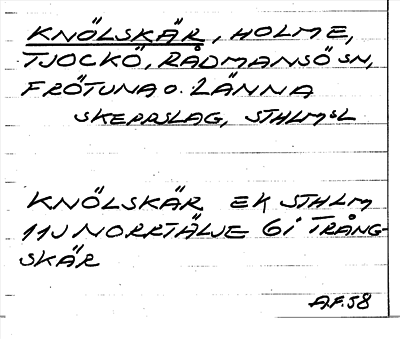 KNÖLSKÄR, HOLME,
TJOCKÖ, RÅDMANSÖ SN,
FRÖTUNA O. LÄNNA
SKEPPSLAG, STHLMSL
KNÖLSKÄR EK STHLM
11J NORRTÄLJE 6i TRÅNG-
SKÄR
A.F.58